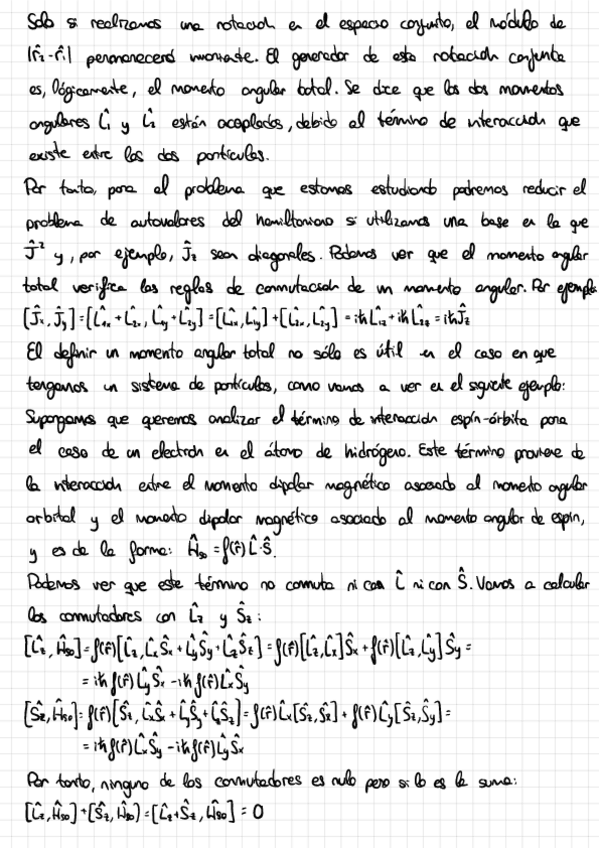 Solo si realizamos una rotación en el espacio conjunto, el módulo de
|r̂₂-r̂₁| permanecerá invariante. El generador de esta rotación conjunta
es, lógicamente, el momento angular total. Se dice que los dos momentos
angulares L̂₁ y L̂₂ están acoplados, debido al término de interacción que
existe entre las dos partículas.
Por tanto, para el problema que estamos estudiando podremos reducir el
problema de autovalores del hamiltoniano si utilizamos una base en la que
Ĵ² y, por ejemplo, Ĵz sean diagonales. Podemos ver que el momento angular
total verifica las reglas de conmutación de un momento angular. Por ejemplo
[Ĵx, Ĵy]=[L̂1x+L̂2x, L̂1y+L̂2y]=[L̂1x, L̂1y]+[L̂2x, L̂2y]=iħL̂1z+iħL̂2z=iħĴz
El definir un momento angular total no sólo es útil en el caso en que
tengamos un sistema de partículas, como vamos a ver en el siguiente ejemplo:
Supongamos que queremos analizar el término de interacción espín-órbita para
el caso de un electrón en el átomo de hidrógeno. Este término proviene de
la interacción entre el momento dipolar magnético asociado al momento angular
orbital y el momento dipolar magnético asociado al momento angular de espín,
y es de la forma: Ĥso=f(r̂)L̂·Ŝ.
Podemos ver que este término no conmuta ni con L̂ ni con Ŝ. Vamos a calcular
los conmutadores con L̂z y Ŝz:
[L̂z, Ĥso]=f(r̂)[L̂z, L̂xŜx+L̂yŜy+L̂zŜz]=f(r̂)[L̂z, L̂x]Ŝx+f(r̂)[L̂z, L̂y]Ŝy=
=iħf(r̂)L̂yŜx-iħf(r̂)L̂xŜy
[Ŝz, Ĥso]=f(r̂)[Ŝz, L̂xŜx+L̂yŜy+L̂zŜz]=f(r̂)L̂x[Ŝz, Ŝx]+f(r̂)L̂y[Ŝz, Ŝy]=
=iħf(r̂)L̂xŜy-iħf(r̂)L̂yŜx
Por tanto, ninguno de los conmutadores es nulo pero sí lo es la suma:
[L̂z, Ĥso]+[Ŝz, Ĥso]=[L̂z+Ŝz, Ĥso]=0